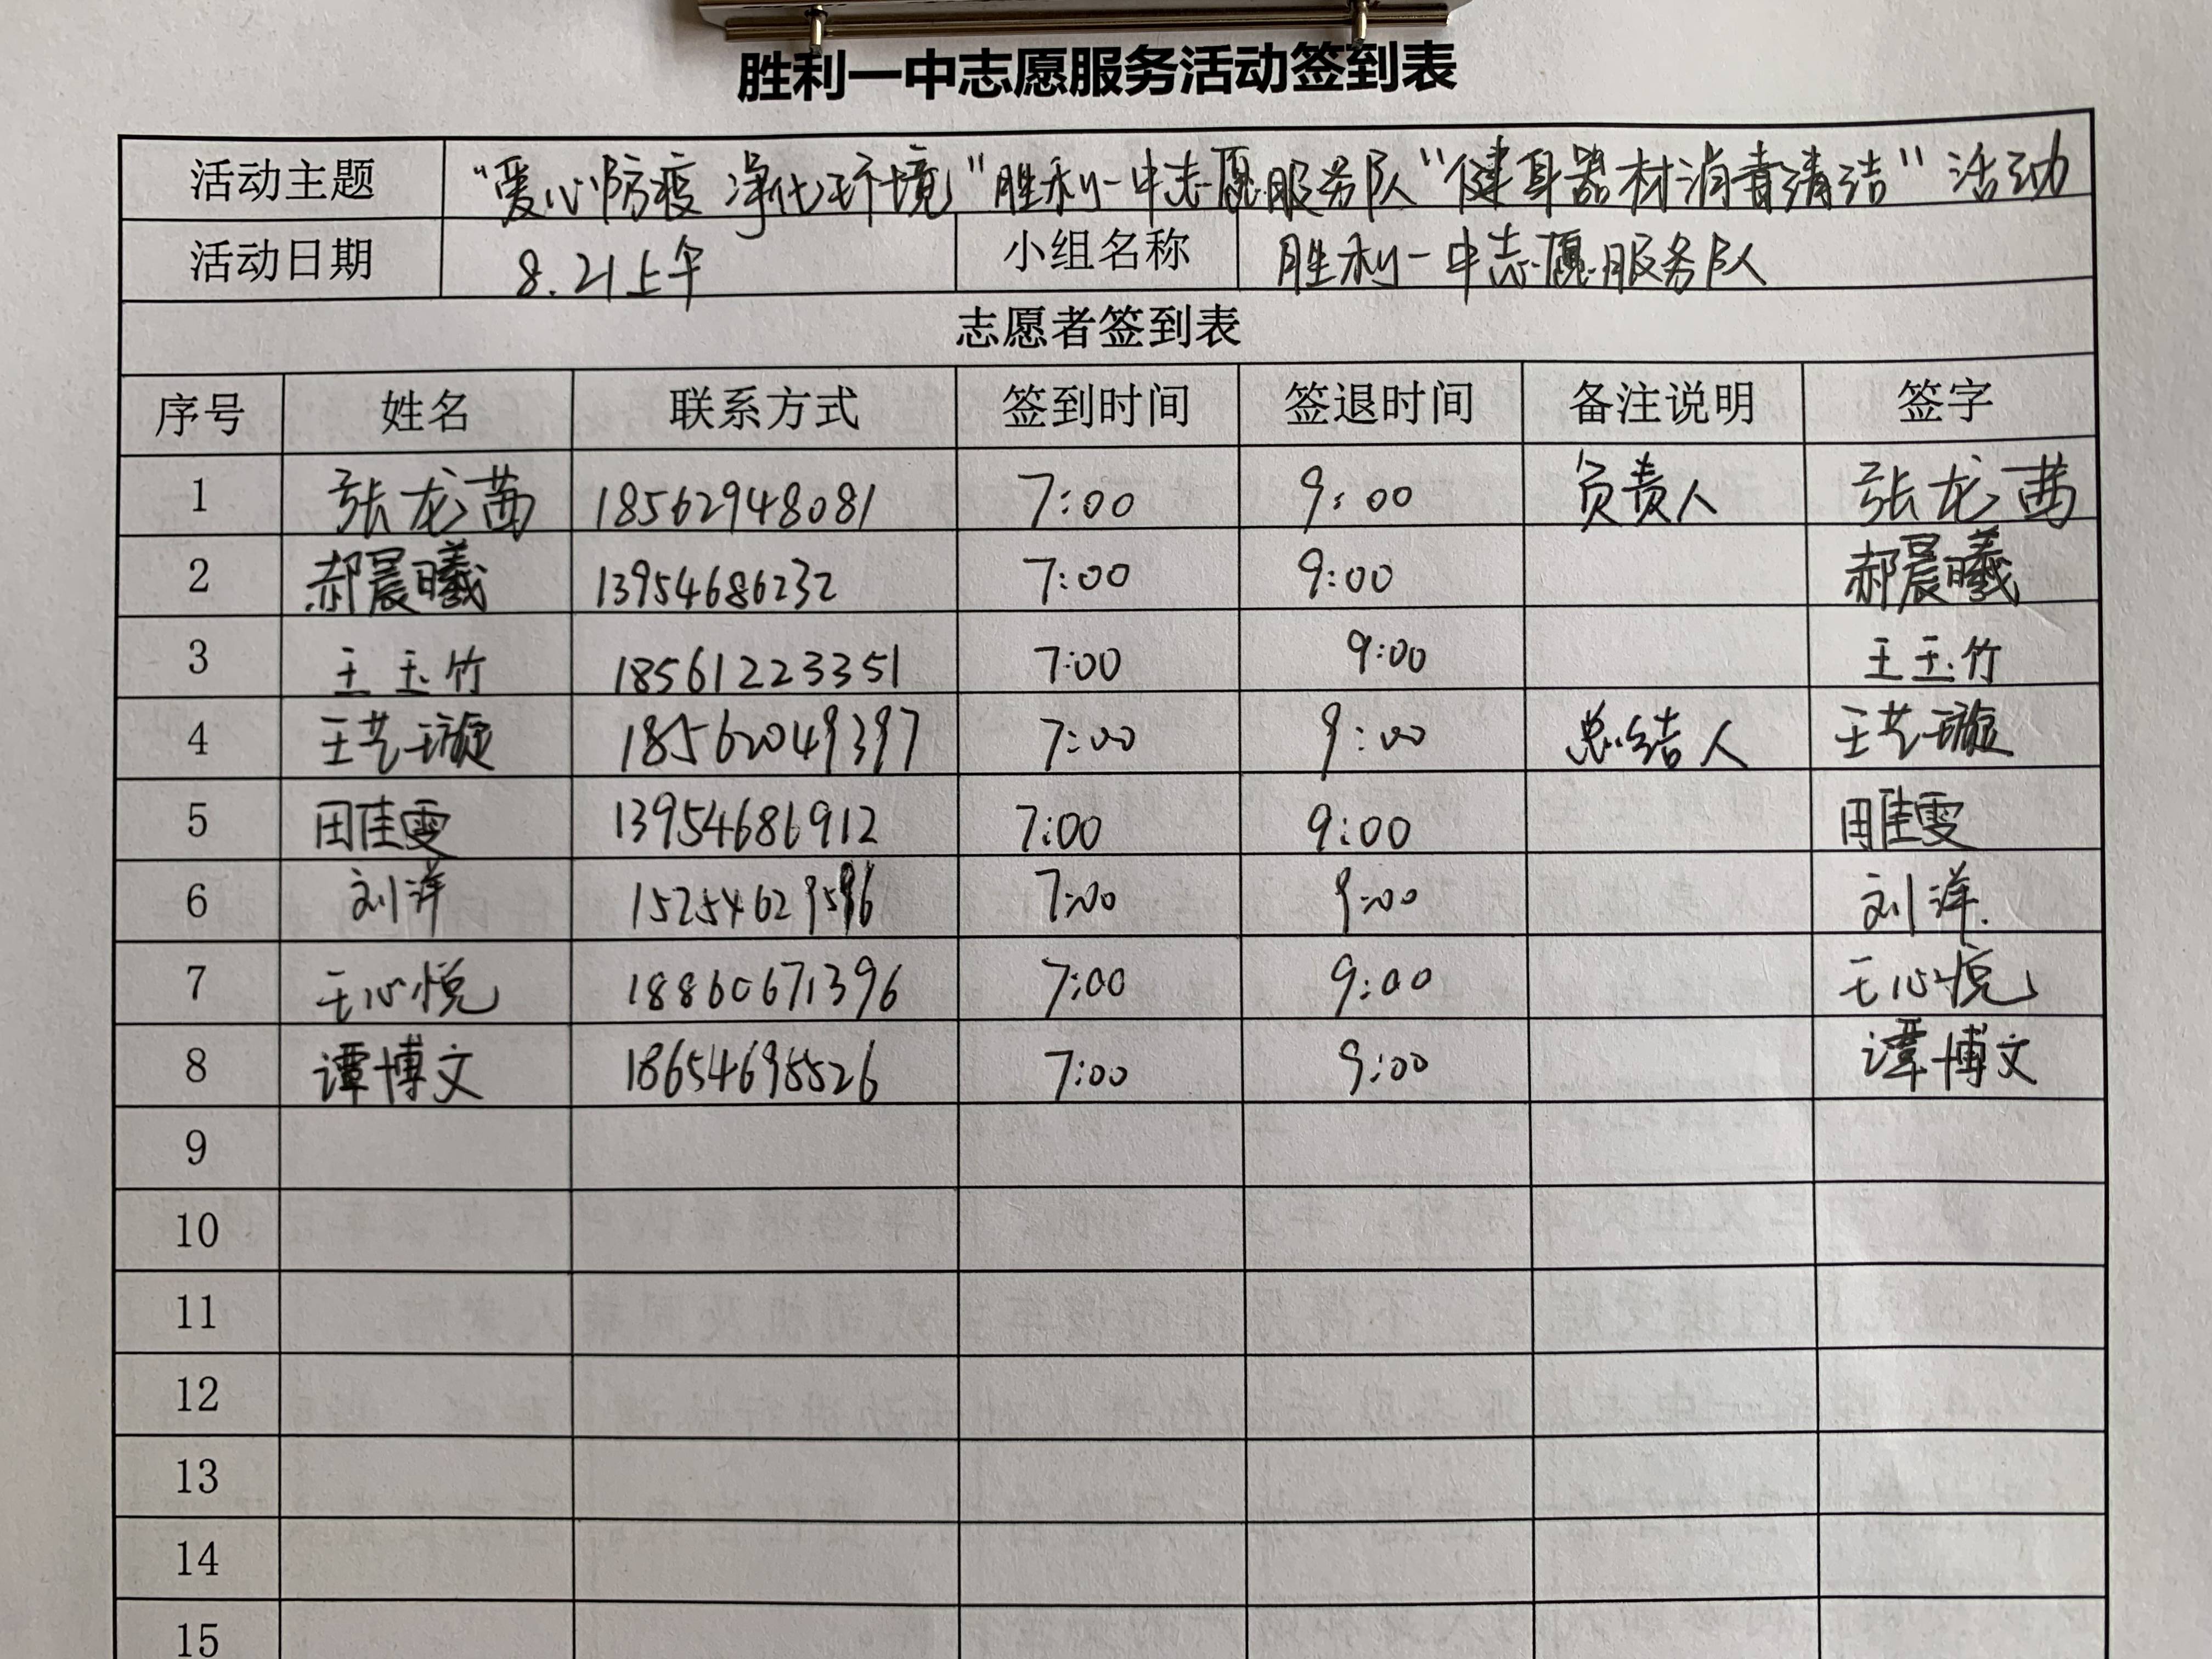 胜利一中志愿服务活动签到表
活动主题 “爱心防疫 净化环境”胜利一中志愿服务队“健身器材消毒清洁”活动
活动日期 8.21上午 小组名称 胜利一中志愿服务队
志愿者签到表
序号 姓名 联系方式 签到时间 签退时间 备注说明 签字
1 张龙茜 18562948081 7:00 9:00 负责人 张龙茜
2 郝晨曦 13954686232 7:00 9:00 郝晨曦
3 王玉竹 18561223351 7:00 9:00 王玉竹
4 王艺璇 18562049397 7:00 9:00 总结人 王艺璇
5 田佳雯 13954686912 7:00 9:00 田佳雯
6 刘洋 7:00 9:00 刘洋
7 王心悦 18860671396 7:00 9:00 王心悦
8 谭博文 18654695526 7:00 9:00 谭博文
9
10
11
12
13
14
15